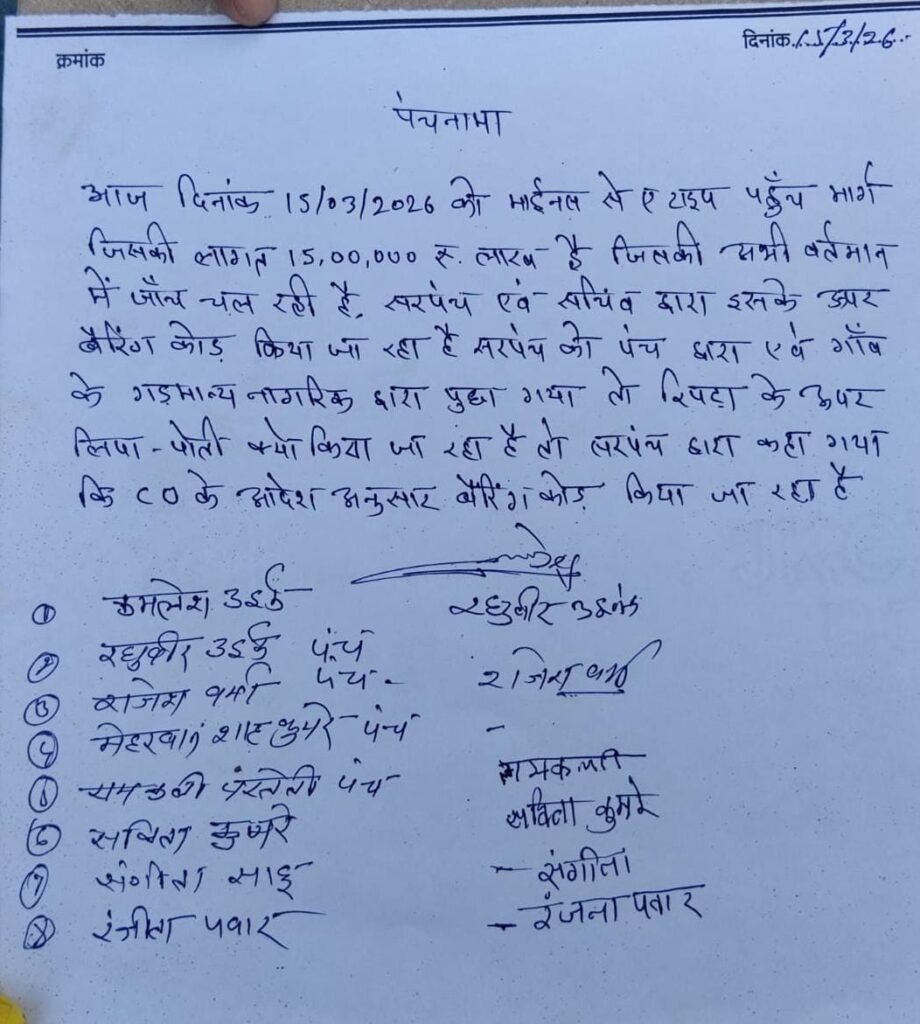 क्रमांक
दिनांक 15/3/26
पंचनामा
आज दिनांक 15/03/2026 को माईनल से ए टाइप पहुँच मार्ग
जिसकी लागत 15,00,000 रु. लाख है जिसकी अभी वर्तमान
में जाँच चल रही है. सरपंच एवं सचिव द्वारा इसके ऊपर
बैरिंग कोड़ किया जा रहा है सरपंच को पंच द्वारा एवं गाँव
के गड़मान्य नागरिक द्वारा पुछा गया तो रिपटा के ऊपर
लिपा-पोती क्यो किया जा रहा है तो सरपंच द्वारा कहा गया
कि CO के आदेश अनुसार बैरिंग कोड़ किया जा रहा है
① कमलेश उइके
② रघुवीर उइके पंच रघुवीर उइके
③ राजेश वर्मा पंच - राजेश वर्मा
④ मेहरबान शाह कुमरे पंच -
रामकली परतेती पंच रामकली
⑥ सविता कुमरे सविता कुमरे
⑦ संगीता साहू - संगीता
⑧ पवार - रंजना पवार